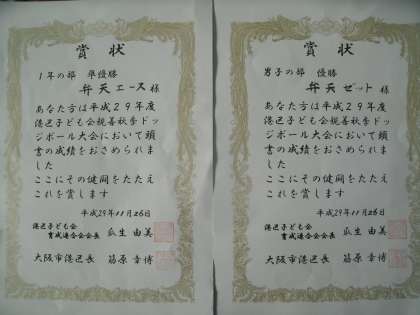 賞状
1年の部 準優勝
弁天エース様
あなた方は平成29年度
港区子ども会親善秋季ドッ
ジボール大会において頭
書の成績をおさめられま
した
ここにその健闘をたたえ
これを賞します
平成29年11月26日
港区子ども会
育成連合会会長 瓜生 由美
大阪市港区長 筋原 章博
賞状
男子の部 優勝
弁天ゼット様
あなた方は平成29年度
港区子ども会親善秋季ドッ
ジボール大会において頭
書の成績をおさめられま
した
ここにその健闘をたたえ
これを賞します
平成29年11月26日
港区子ども会
育成連合会会長 瓜生 由美
大阪市港区長 筋原 章博